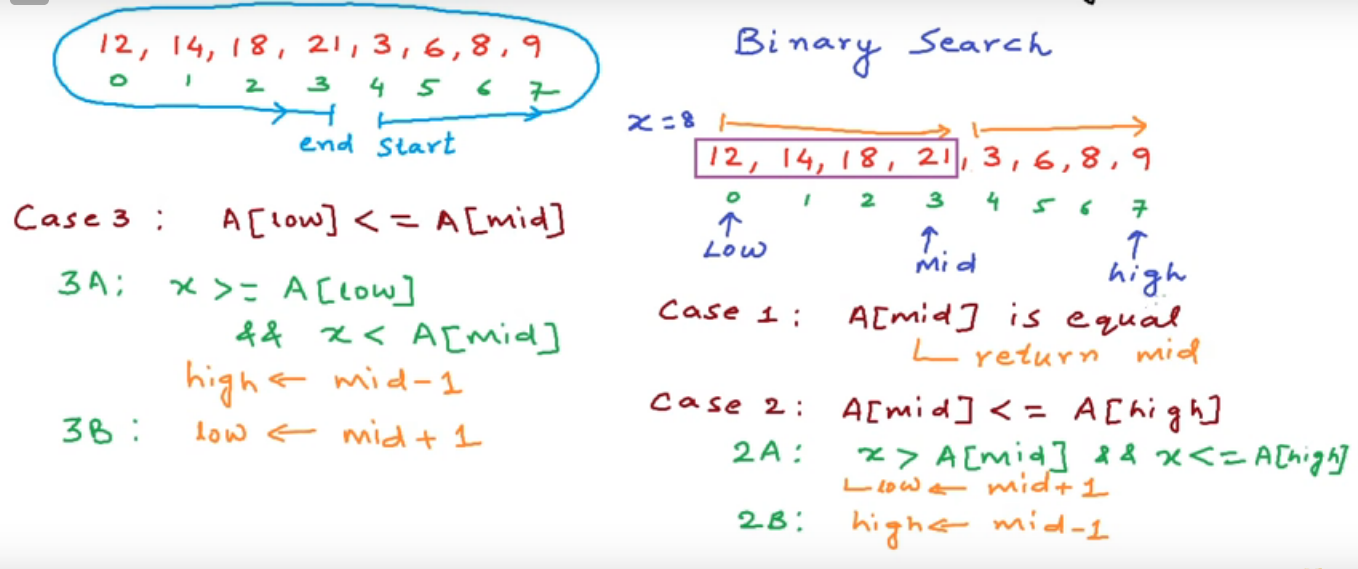 12, 14, 18, 21, 3, 6, 8, 9
0 1 2 3 4 5 6 7
end start
Case 3 : A[low] <= A[mid]
3A: x >= A[low]
&& x < A[mid]
high ← mid-1
3B : low ← mid + 1
Binary Search
x = 8
12, 14, 18, 21, 3, 6, 8, 9
0 1 2 3 4 5 6 7
Low Mid high
Case 1 : A[mid] is equal
return mid
Case 2 : A[mid] <= A[high]
2A : x > A[mid] && x <= A[high]
low ← mid + 1
2B : high ← mid-1